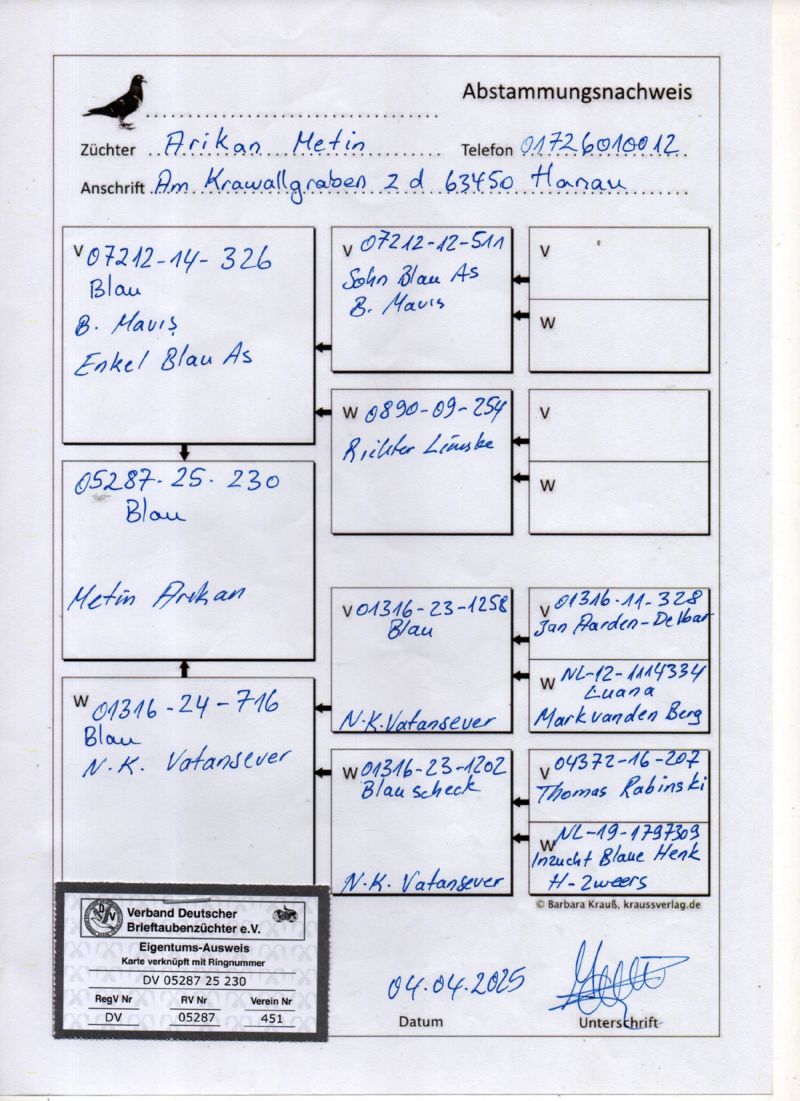 Abstammungsnachweis
Züchter Arikan Metin Telefon 01726010012
Anschrift Am Krawallgraben 2 d 63450 Hanau
V 07212-14-326
Blau
B. Maviş
Enkel Blau As
V 07212-12-511
Sohn Blau As
B. Maviş
V
W
W 0890-09-254
Richter
V
W
05287-25-230
Blau
Metin Arikan
W 01316-24-716
Blau
N.K. Vatansever
V 01316-23-1258
Blau
N.K. Vatansever
V 01316-11-328
Jan Aarden-Delbar
W NL-12-1114334
Luana
Mark vanden Berg
W 01316-23-1202
Blauscheck
N.K. Vatansever
V 04372-16-207
Thomas Rabinski
W NL-19-1797309
Inzucht Blaue Henk
H-Zweers
© Barbara Krauß, kraussverlag.de
Verband Deutscher
Brieftaubenzüchter e.V.
Eigentums-Ausweis
Karte verknüpft mit Ringnummer
DV 05287 25 230
RegV Nr RV Nr Verein Nr
DV 05287 451
04.04.2025
Datum Unterschrift